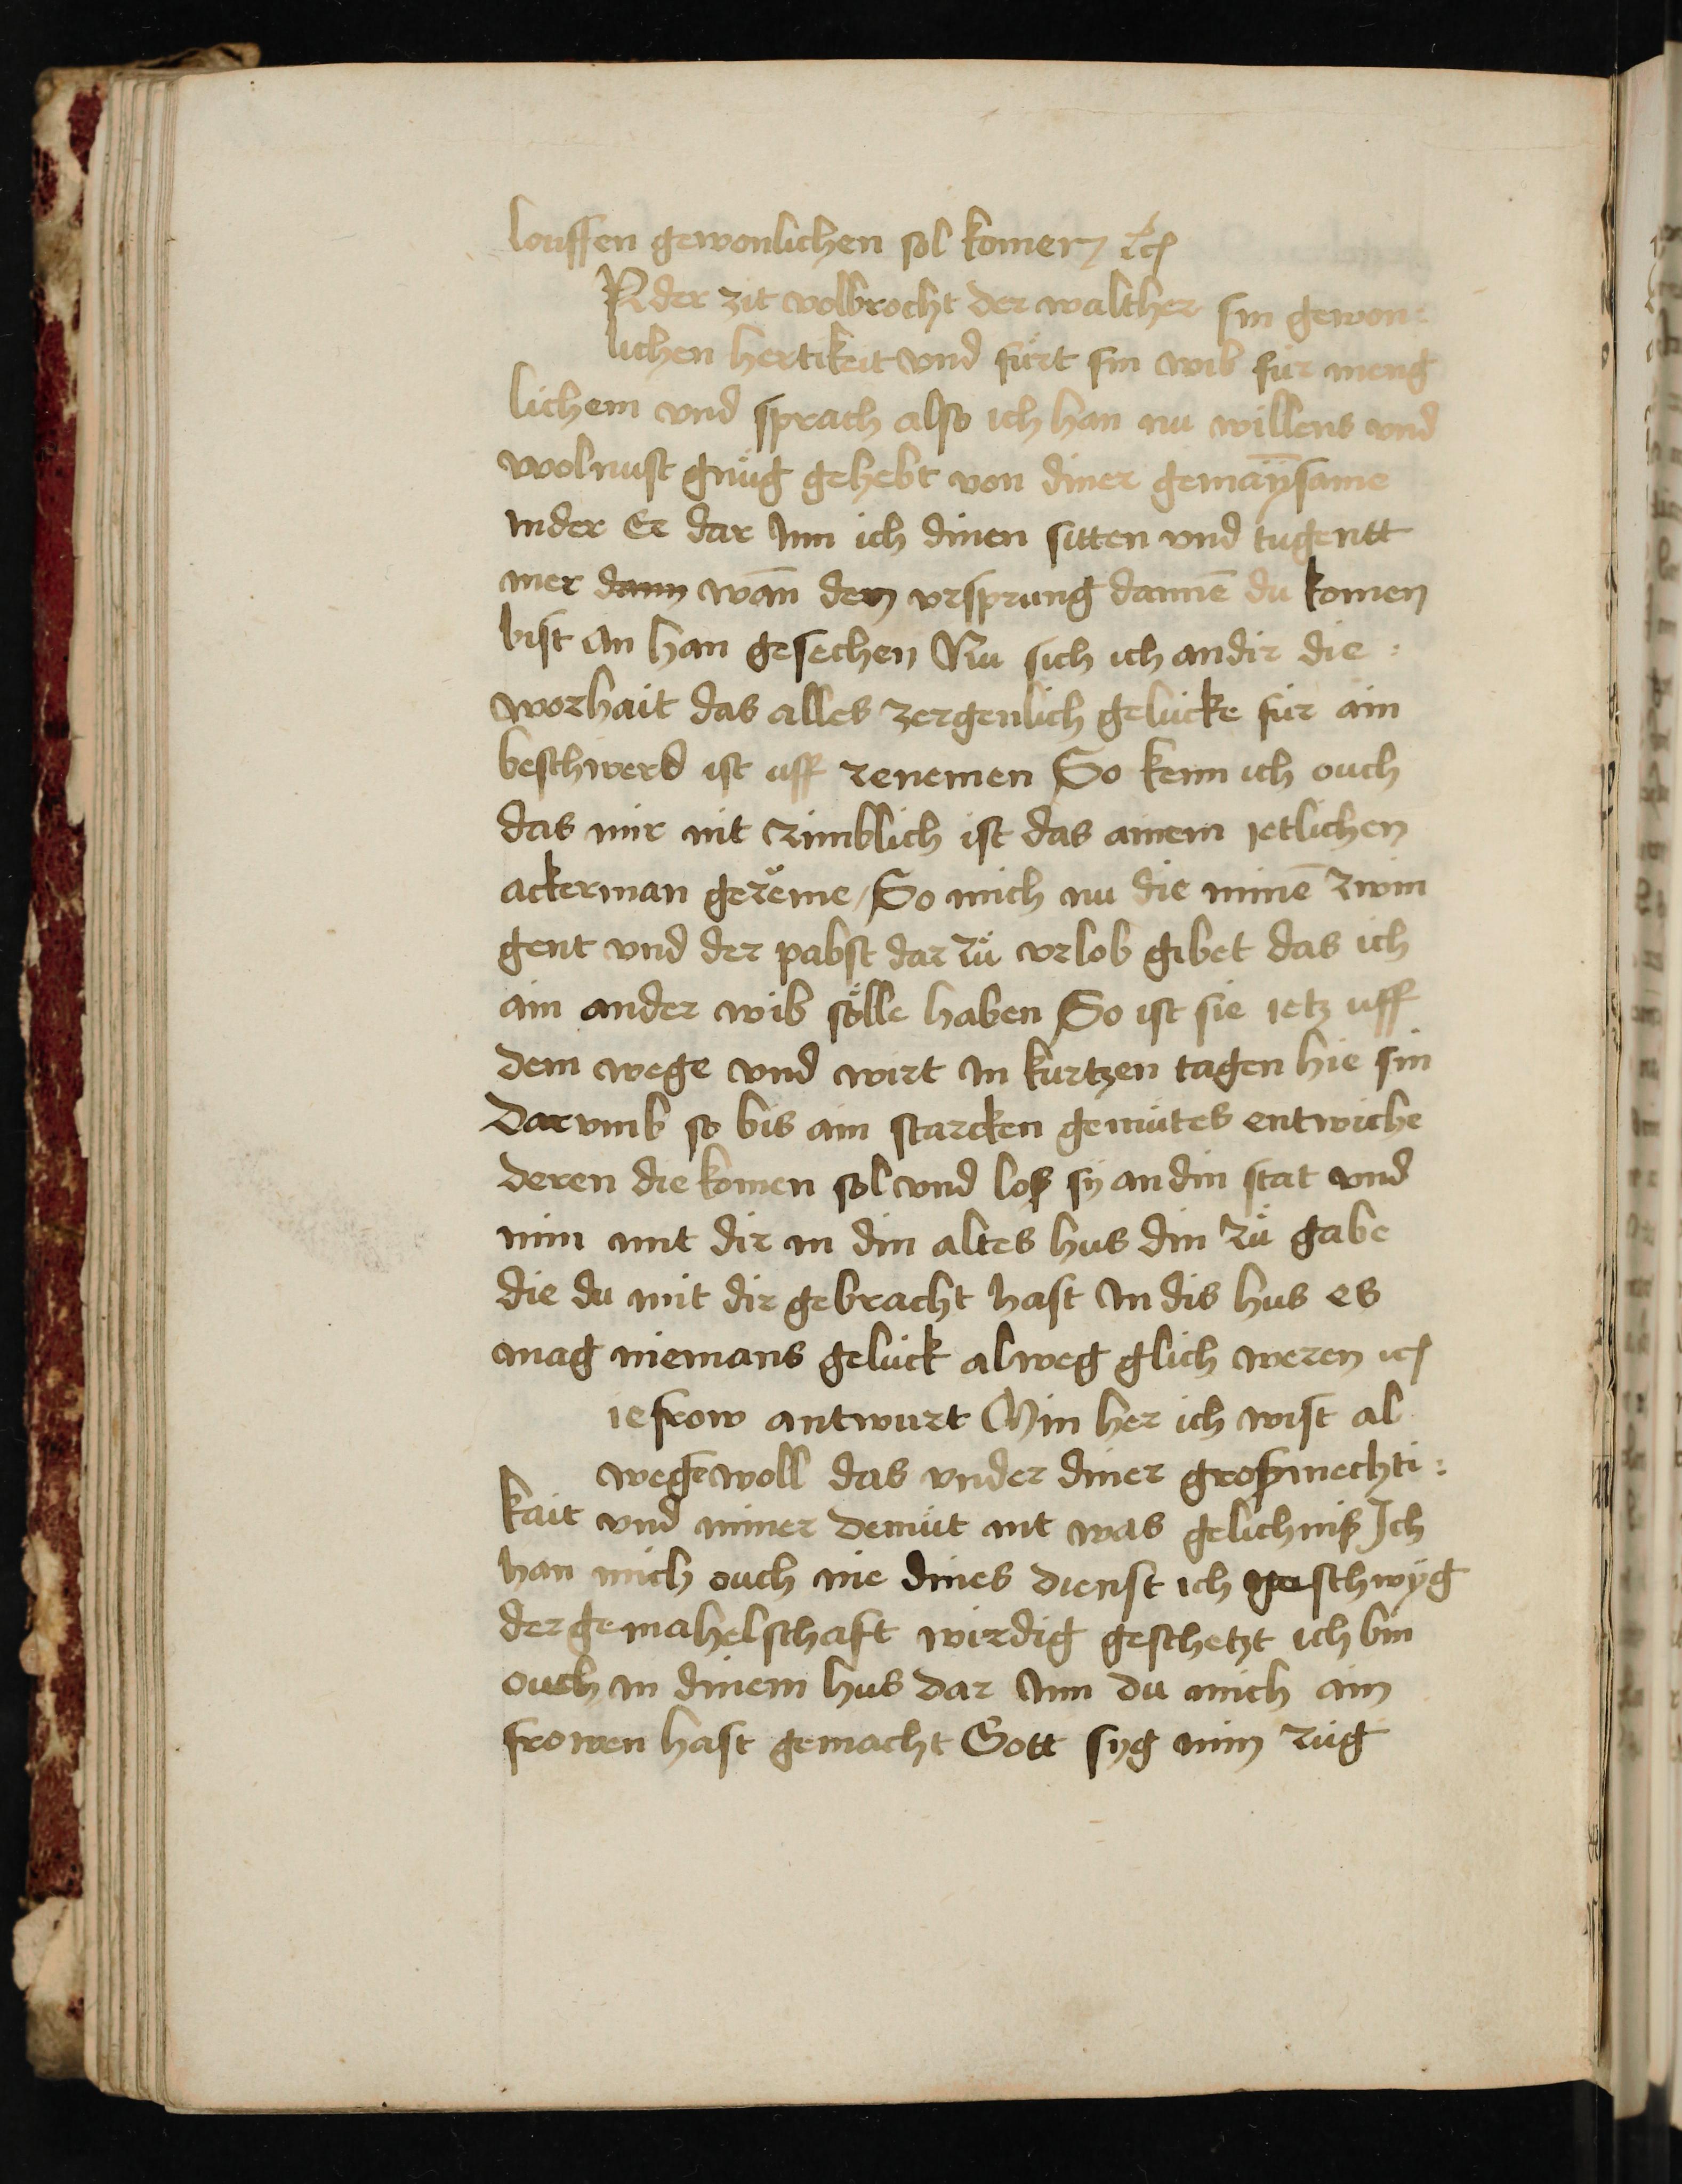 louffen gewonlichen sol komen ⁊c
N der zit volbrocht der walther sin gewon-
lichen hertikeit vnd fürt sin wib für meng
lichem vnd sprach also ich han nu willens vnd
wolnust gnüg gehebt von diner gemaӱsame
In der Er dar Inn ich dinen sitten vnd tugentt
mer wan̄ den vrsprung dannē du komen
bist an han gesechen Nu sich ich an dir die :
worhait das alles zergenlich gelücke für ain
beschwerd ist uff zenemen So kenn ich ouch
das mir nit zimblich ist das ainem ietlichen
ackerman gezeme / So mich nu die minē zwin
gent vnd der pabst dar zů vrlob gibet das ich
ain ander wib sölle haben So ist sie ietz uff
dem wege vnd wirt in kurtzen tagen hie sin
Dar vmb so bis ain starcken gemütes entwiche
deren die komen sol vnd loß sy an din stat vnd
nim mit dir in din altes hus din zů gabe
die du mit dir gebracht hast In dis hus es
mag niemans gelück alweg glich weren ⁊c
ie frow antwurt Min her ich wist al
wege woll das vnder diner groß mechti :
kait vnd miner demüt nit was gelichniß Ich
han mich ouch nie dines dienst ich geschwyg
der gemahelschaft wirdig geschetzt ich bin
ouch in dinem hus dar Inn du mich ain
frowen hast gemacht Gott syg min züg